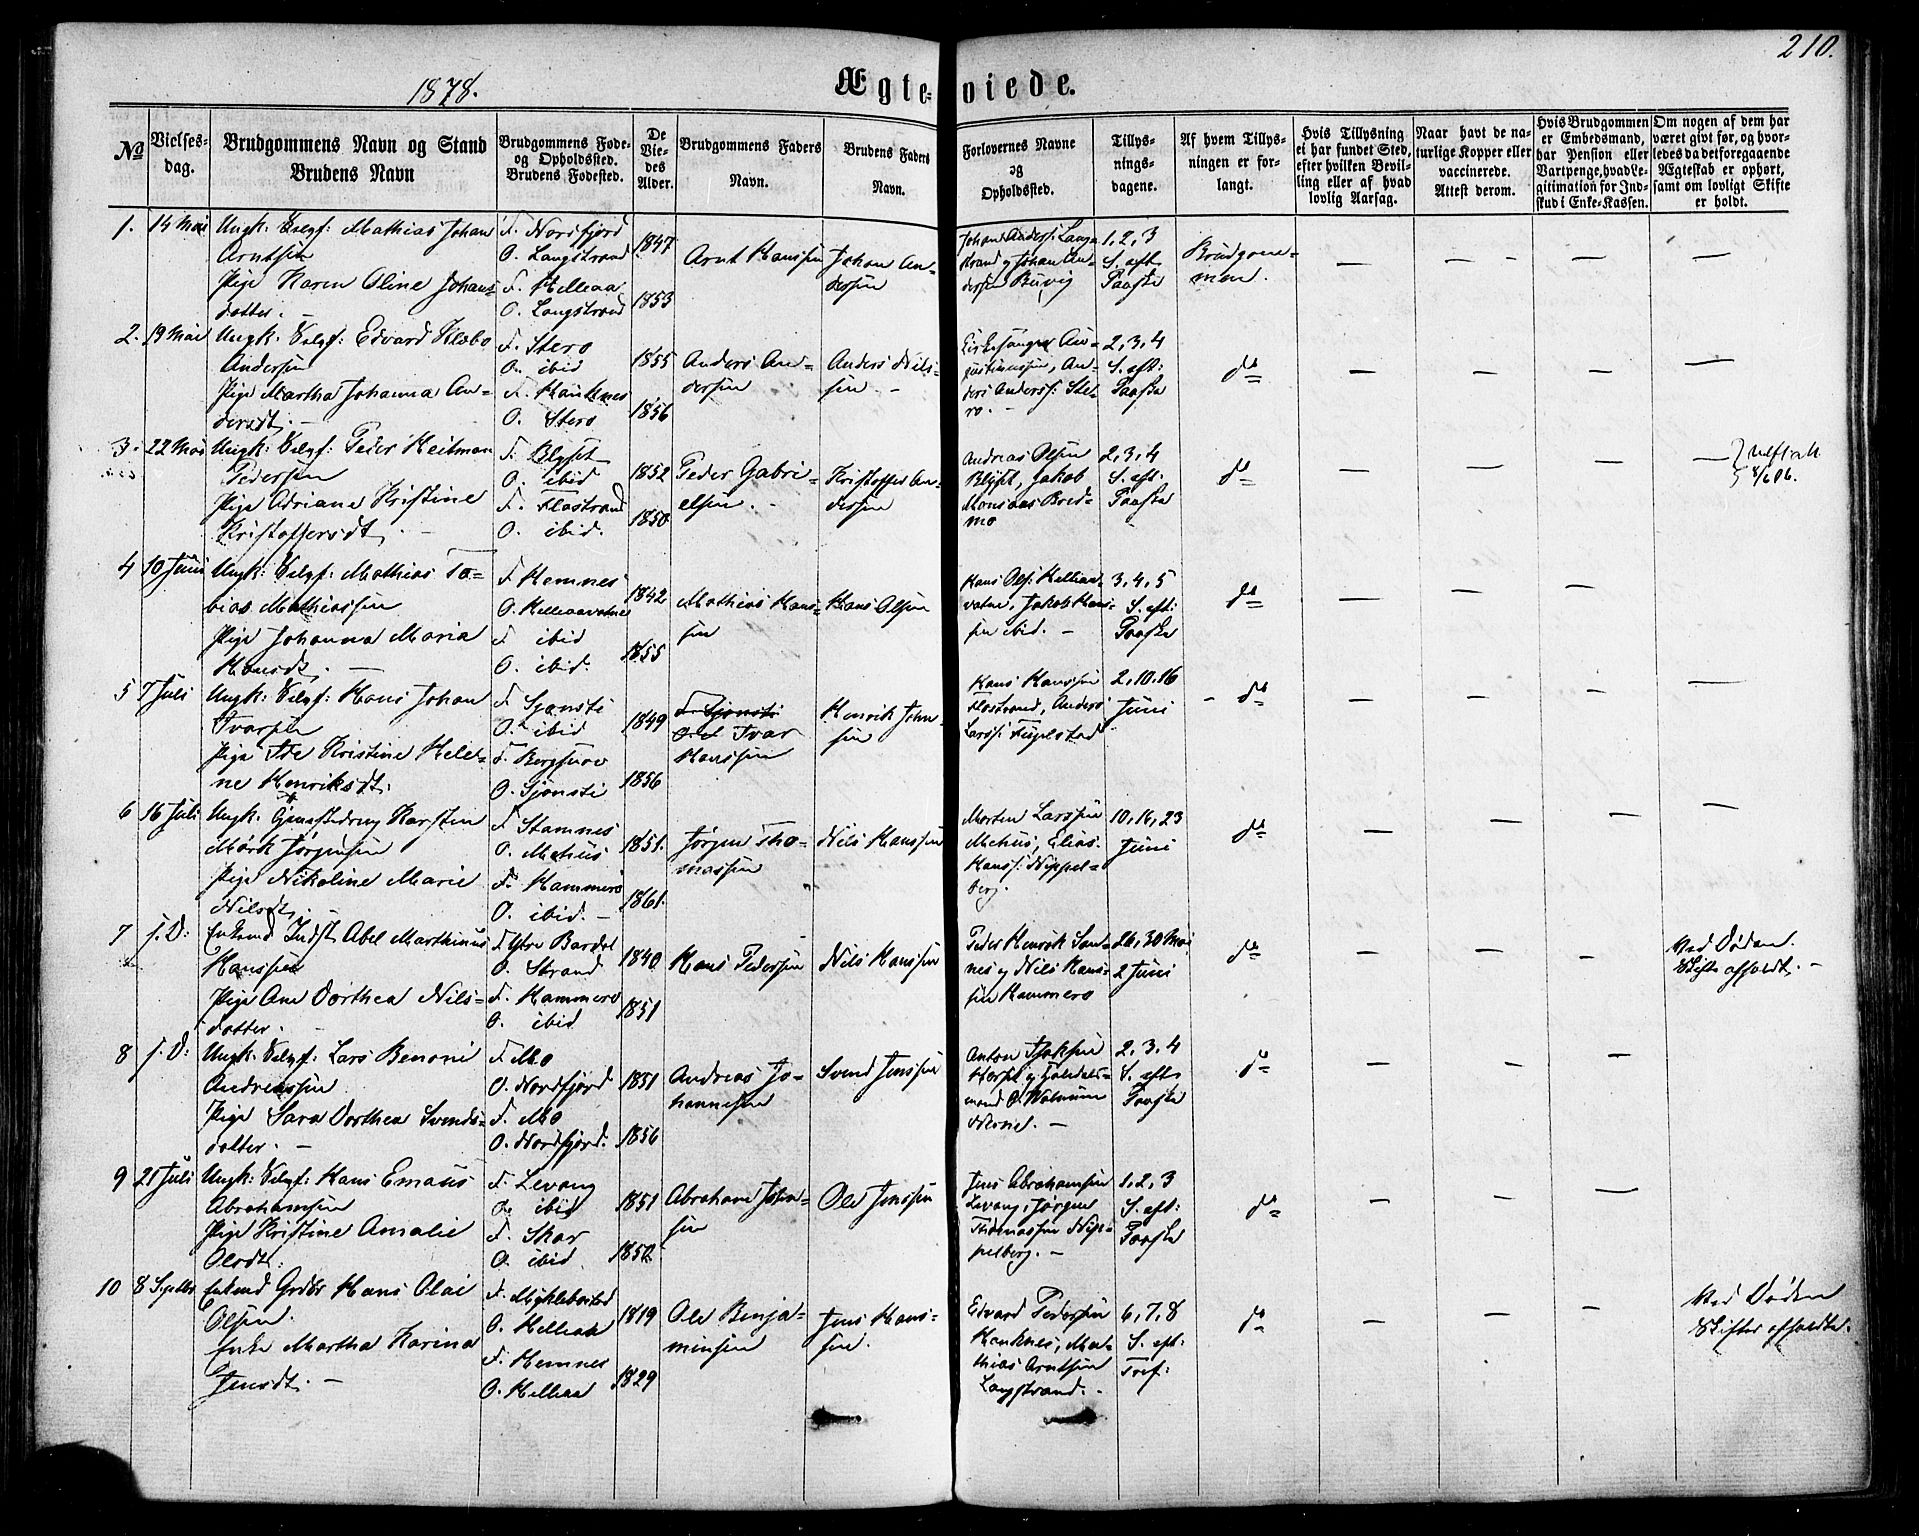 210.
1878.
Ægte- viede.
No
Vielses-
dag.
Brudgommens Navn og Stand
Brudens Navn
Brudgommens Føde-
og Opholdssted.
Brudens Fødested.
De
Vie-
des
Alder.
Brudgommens Faders
Navn.
Brudens Faders
Navn.
Forlovernes Navne
og
Opholdssted.
Tillys-
nings-
dagene.
Af hvem Tillys-
ningen er for-
langt.
Hvis Tillysning
ei har fundet Sted,
efter hvilken Bevil-
ling eller af hvad
lovlig Aarsag.
Naar havt de na-
turlige Kopper eller
vaccinerede.
Attest derom.
Hvis Brudgommen
er Embedsmand,
har Pension eller
Vartpenge, hvad Le-
gitimation for Ind-
skud i Enke-Kassen.
Om nogen af dem har
været givt før, og hvor-
ledes da det foregaaende
Ægteskab er ophørt,
samt om lovligt Skifte
er holdt.
1. 14 Mai
Ungk: Selvf: Mathias Johan
Arntsen
Pige Karen Oline Johans-
datter. —
F. Nordfjord
O. Langstrand
F. Hellaa
O. Langstrand
1847
1853
Arnt Hanssen
Johan An-
dersen
Johan Anderss: Lang-
strand og Johan An-
dersen Buvig
1, 2, 3
S. eft.
Paaske
Brudgom-
men.
— — — —
2. 19 Mai
Ungk. Selvf: Edvard Klæbo
Andersen
Pige Martha Johanna An-
dersdt. —
F. Stero
O. ibid
F. Hauknes
O. Stero
1855
1856
Anders An-
dersen
Anders Nils-
sen. —
Kirkesanger Au-
gustinussen, An-
ders Anderss: Ste-
ro. —
2, 3, 4
S. eft:
Paaske
do
— — — —
3. 22 Mai
Ungk: Selvf: Peder Heitman
Pedersen
Pige Adriane Kristine
Kristoffersdt. —
F. Blyset
O. ibid
F. Flostrand
O. ibid.
1852
1850
Peder Gabri-
elsen. —
Kristoffer An-
dersen
Andreas Olsen
Blyset, Jakob
Monsaas Bred-
mo
2, 3, 4
S. eft:
Paaske
do
— — — —
8/6 06.
4 10 Juni
Ungk: Selvf: Mathias To-
bias Mathiassen
Pige Johanna Maria
Hansdt. —
F. Hemnes
O. Hellaavatnet
F. ibid
O. ibid.
1842
1855
Mathias Hans-
sen
Hans Olsen
Hans Ols: Hellaa-
vatne, Jakob Hans-
sen ibid. —
3, 4, 5
S. eft:
Paaske
do
— — —
5 7 Juli
Ungk: Selvf: Hans Johan
Ivarsen
Pige Kristine Hele-
ne Henriksdt:
F. Sjonsti
O. ibid
F. Bergsnov
O. Sjonsti
1849
1856
F. Sjonsti
Ivar
Hanssen
Henrik John-
sen
Hans Hanssen
Flostrand, Anders
Larss: Fuglstad
2, 10, 16
Juni
do
— — — —
6 16 Juli
Ungk. Karsten
Mørk Jørgensen
Pige Nikoline Marie
Nilsdt. —
F. Stamnes
O. Mehus
F. Hammerø
O. ibid. —
1851.
1861.
Jørgen Tho-
massen
Nils Hanssen
Morten Larssen
Mehus, Elias
Hanss: Nippel-
berg.
10, 16, 23
Juni
do
— — — —
7 s. D:
Enkemd Indst Abel Marthinus
Hanssen
Pige Ane Dorthea Nils-
datter. —
F. Ytre Bardal
O. Strand
F. Hammerø
O. ibid
1840
1851
Hans Pedersen
Nils Hanssen
Peder Henrik Sand-
nes og Nils Hans-
sen Hammerø
26, 30 Mai
2 Juni
do
— — —
Ved Døden.
Skifte afholdt. —
8 s. D:
Ungk: Selvf: Lars Benoni
Andreassen
Pige Sara Dorthea Svends-
datter. —
F. Mo
O. Nordfjord
F. Mo
O. Nordfjord.
1851
1856
Andreas Jo-
hannesen
Svend Jenssen
Anton
2, 3, 4
S. eft.
Paaske
do
— — —
9 21 Juli
Ungk: Selvf: Hans Emaus
Abrahamsen
Pige Kristine Amalie
Olsdt:
F. Levang
O. ibid
F. Skar
O. ibid.
1851
1852
Abraham John-
sen
Ole Jenssen
Jens Abrahamsen
Levang, Jørgen
Thomassen Nip-
pelberg. —
1, 2, 3
S. eft:
Paaske
do
— — —
10 8 Septbr
Enkemd Grdbr Hans Olai
Olsen.
Enke Martha Karina
Jensdt. —
F. Myklebostad
O. Hellaa
F. Hemnes
O. Hellaa
1819
1829
Ole Benja-
minsen
Jens Hans-
sen.
Edvard Pedersen
Hauknes, Ma-
thias Arntsen
Langstrand. —
6, 7, 8
S. eft.
Tref:
do
— — —
Ved Døden
Skifter afholdte.